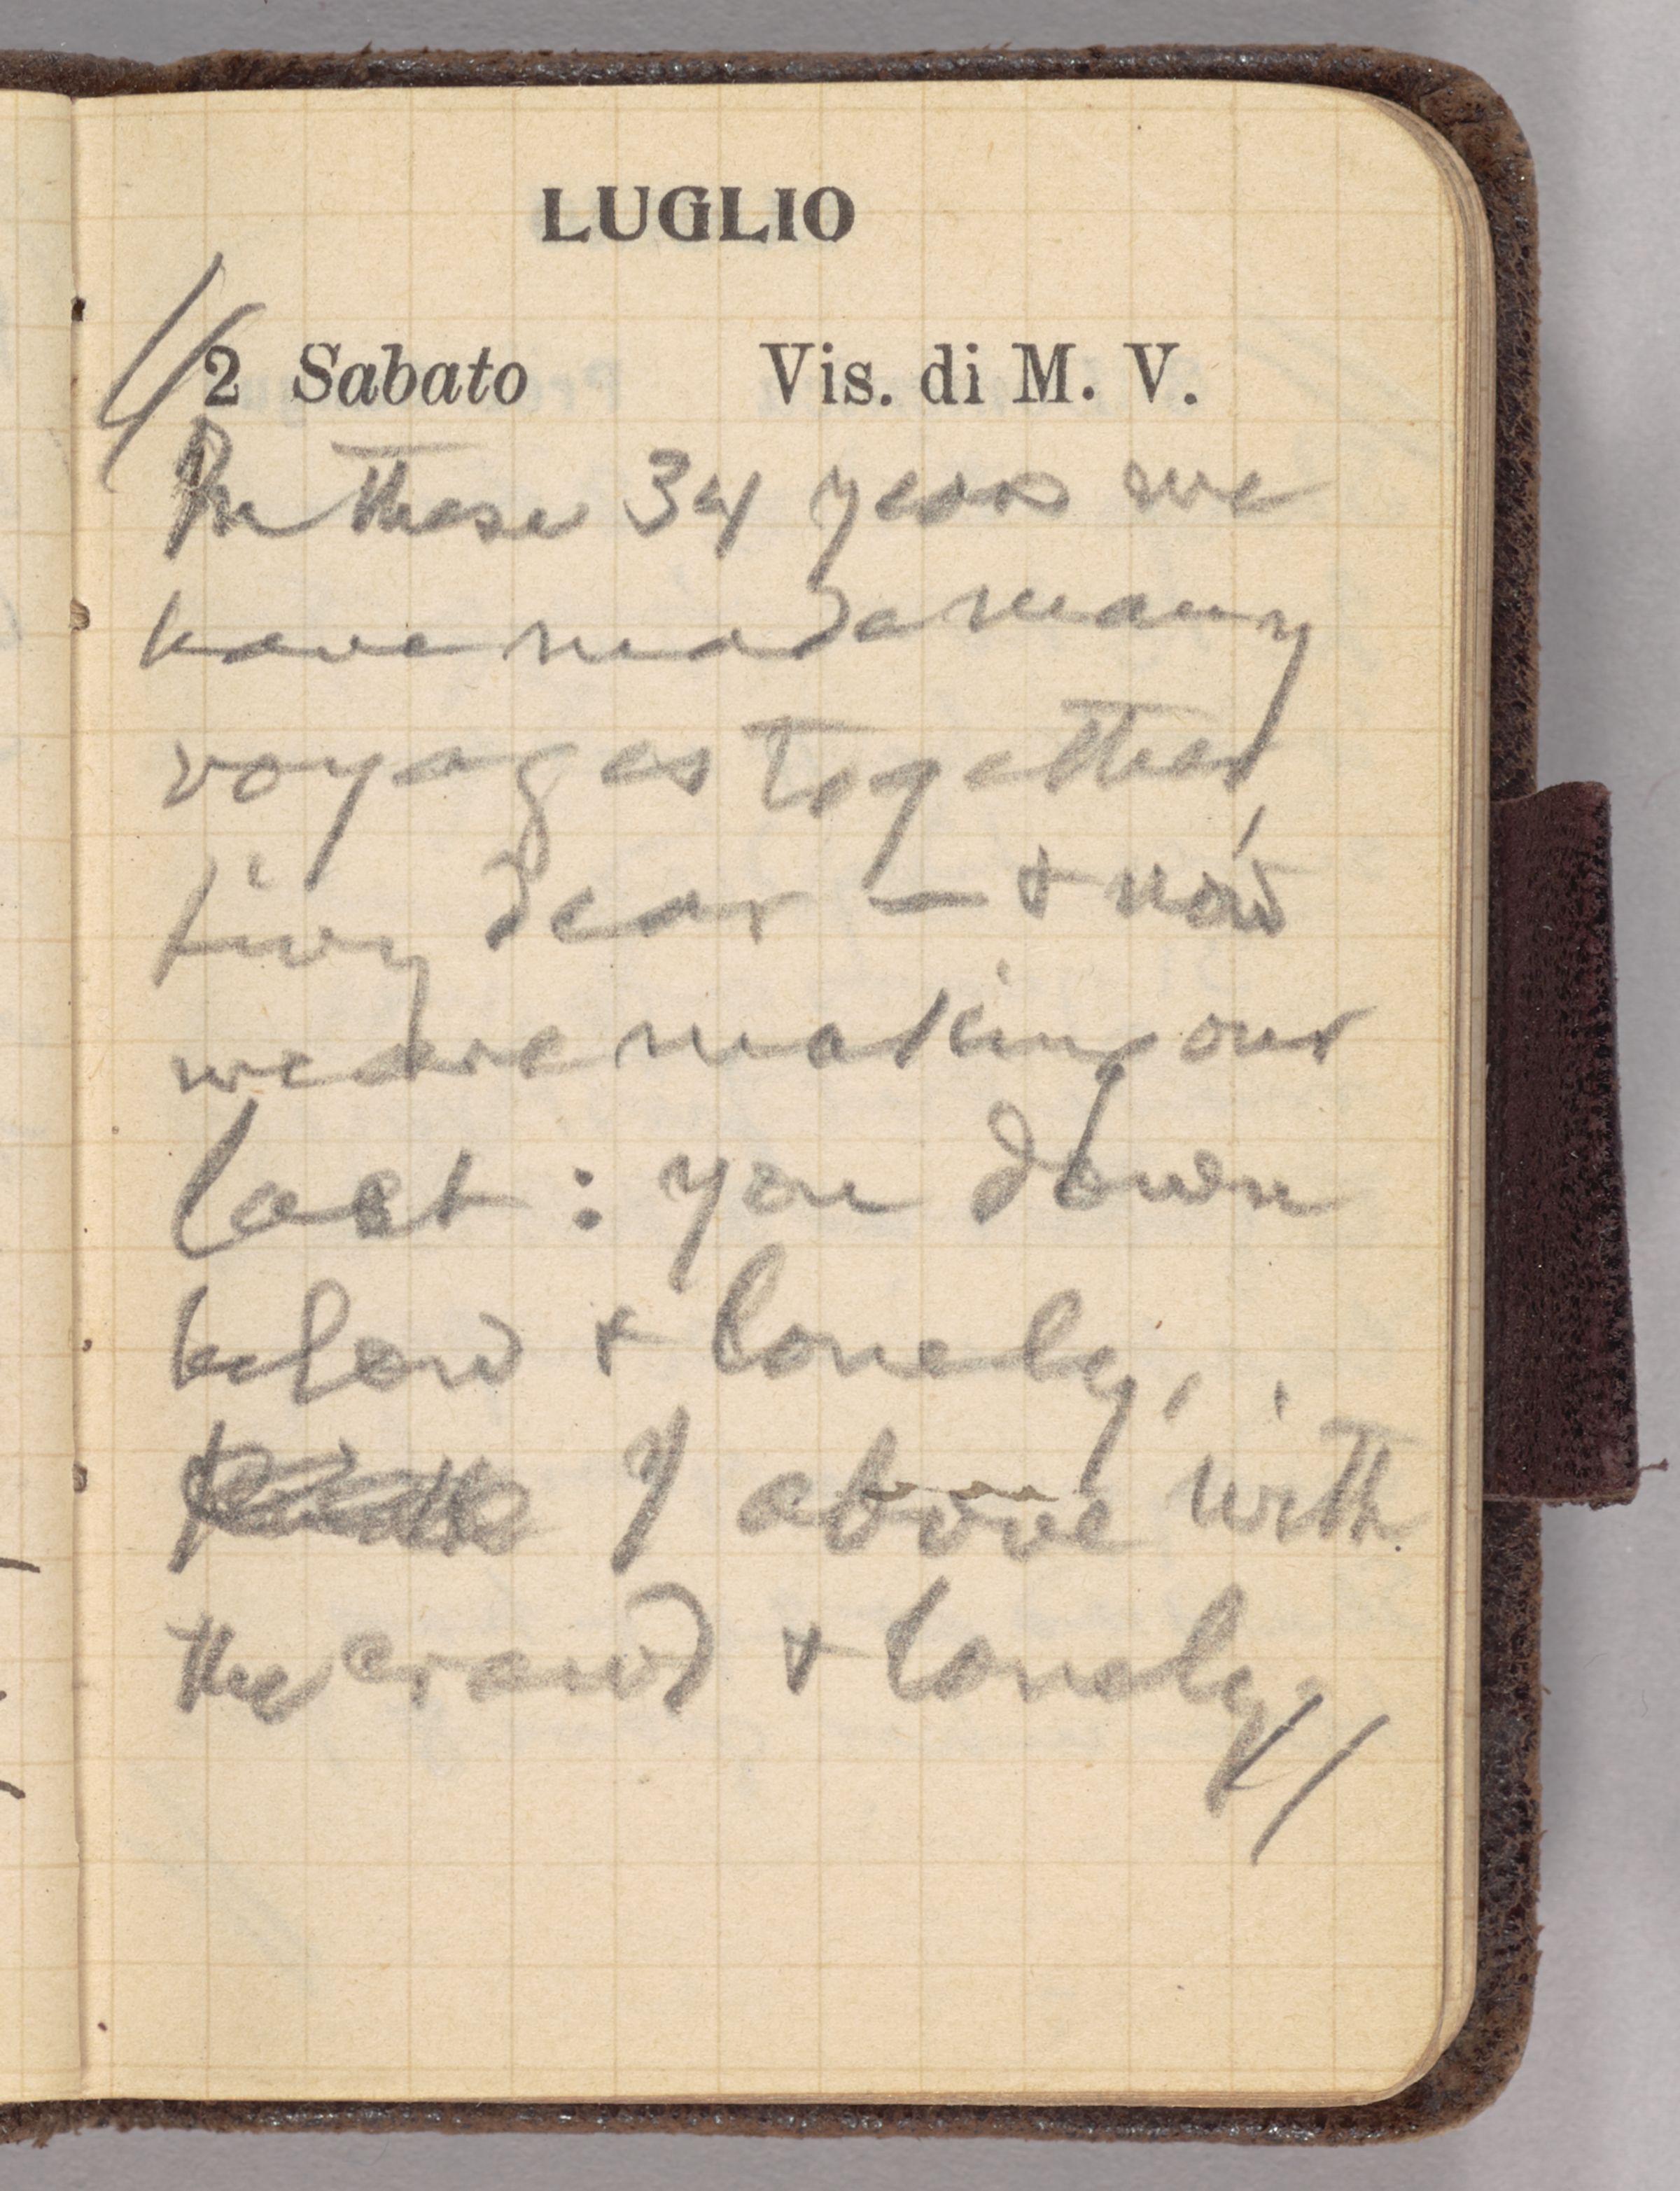 LUGLIO
2 Sabato Vis. di M. V.
In these 34 years we
have made many
voyages together,
Livy dear — & now
we are making our
last: you down
below & lonely,
I above with
the crowd & lonely.